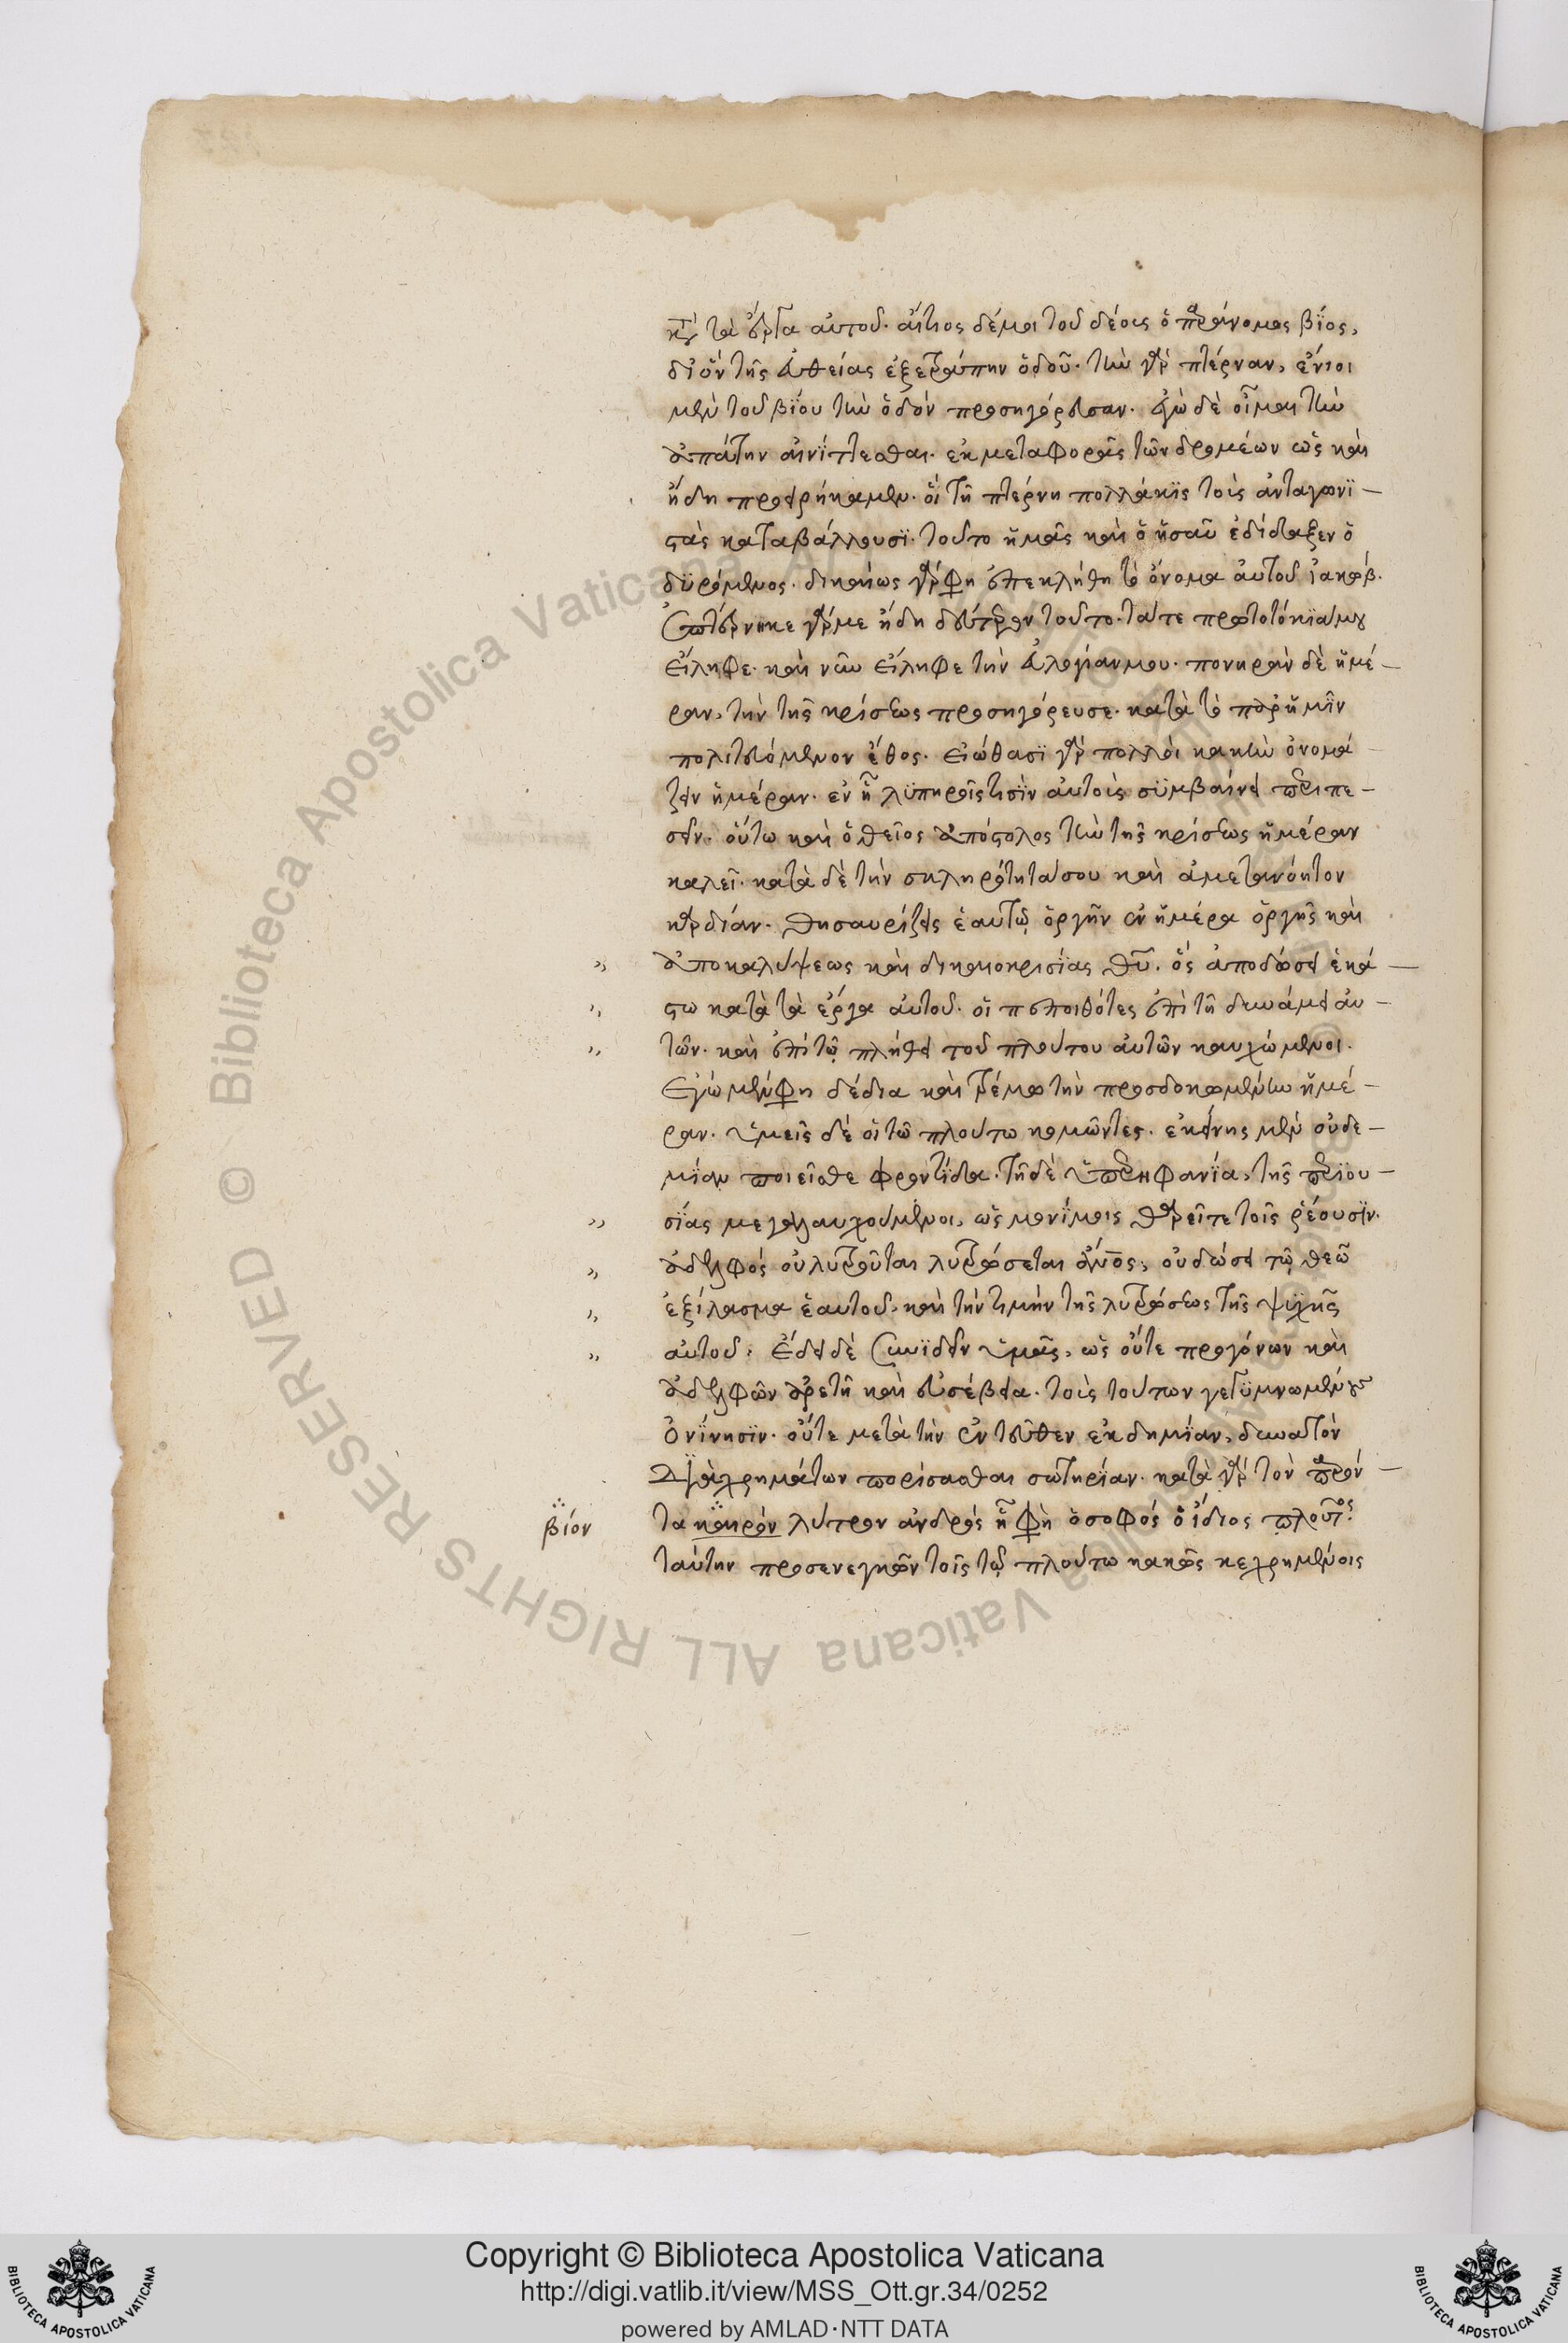 κατὰ τὰ ἔργα αὐτοῦ. αἴτιος δέ μοι τοῦ δέους ὁ παράνομος βίος,
δι' ὃν τῆς εὐθείας ἐξετράπην ὁδοῦ. τὴν γὰρ πτέρναν, ἔνιοι
μὲν τοῦ βίου τὴν ὁδὸν προσηγόρευσαν. ἐγὼ δὲ οἶμαι τὴν
ἀπάτην αἰνίττεσθαι. ἐκ μεταφορᾶς τῶν δρομέων ὡς καὶ
ἤδη προειρήκαμεν. οἳ τῇ πτέρνῃ πολλάκις τοὺς ἀνταγωνι-
στὰς καταβάλλουσι. τοῦτο ἡμᾶς καὶ ὁ ἡσαῦ ἐδίδαξεν ὁ
δυρόμενος. δικαίως γάρ φη ἐπεκλήθη τὸ ὄνομα αὐτοῦ ἰακώβ.
ἐπτέρνικε γάρ με ἤδη δεύτερον τοῦτο. τά τε πρωτοτόκιά μου
εἴληφε. καὶ νῦν εἴληφε τὴν εὐλογίαν μου. πονηρὰν δὲ ἡμέ-
ραν, τὴν τῆς κρίσεως προσηγόρευσε. κατὰ τὸ παρ' ἡμῖν
πολιτευόμενον ἔθος. εἰώθασι γὰρ πολλοὶ κακὴν ὀνομά
ζειν ἡμέραν. ἐν ᾗ λυπηροῖς τισὶν αὐτοὺς συμβαίνει περιπε-
σεῖν. οὕτω καὶ ὁ θεῖος ἀπόστολος τὴν τῆς κρίσεως ἡμέραν
καλεῖ. κατὰ δὲ τὴν σκληρότητά σου καὶ ἀμετανόητον
καρδίαν. θησαυρίζεις ἑαυτῷ ὀργὴν ἐν ἡμέρα ὀργῆς καὶ
" ἀποκαλύψεως καὶ δικαιοκρισίας θυ. ὃς ἀποδώσει ἑκά-
" στω κατὰ τὰ ἔργα αὐτοῦ. οἱ πεποιθότες ἐπὶ τῇ δυνάμει αὐ-
" τῶν. καὶ ἐπὶ τῷ πλήθει τοῦ πλούτου αὐτῶν καυχώμενοι.
Ἐγὼ μέν φη δέδια καὶ τρέμω τὴν προσδοκωμένην ἡμέ-
ραν. ὑμεῖς δὲ οἱ τῶ πλούτω κομῶντες. ἐκείνης μὲν οὐδε-
μίαν ποιεῖσθε φροντίδα. τῇ δὲ ὑπερηφανία, τῆς περιου-
" σίας μεγαλαυχούμενοι, ὡς μονίμοις θαρρεῖτε τοῖς ῥέουσιν.
" ἀδελφὸς οὐ λυτροῦται λυτρώσεται ἄνος, οὐ δώσει τῷ θεῶ
" ἐξίλασμα ἑαυτοῦ, καὶ τὴν τιμὴν τῆς λυτρώσεως τῆς ψυχῆς
" αὐτοῦ. ἔδει δὲ συνιδεῖν ὑμᾶς, ὡς οὔτε προγόνων καὶ
ἀδελφῶν ἀρετὴ καὶ εὐσέβεια. τοὺς τούτων γεγυμνωμένους
ὀνίνησιν. οὔτε μετὰ τὴν ἐντεῦθεν ἐκδημίαν, δυνατὸν
διὰ χρημάτων πορίσασθαι σωτηρίαν. κατὰ γὰρ τὸν παρόν-
βίον
τα καιρὸν λύτρον ἀνδρὸς ᾗ φὴ ὁ σοφὸς ὁ ἴδιος πλοῦτος.
ταύτην προσενεγκῶν τοῖς τῷ πλούτω κακῶς κεχρημένοις
Copyright © Biblioteca Apostolica Vaticana
http://digi.vatlib.it/view/MSS_Ott.gr.34/0252
powered by AMLAD·NTT DATA